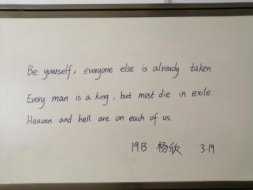 Be yourself, everyone else is already taken
Every man is a king, but must die in exile
Heaven and hell are on each of us.
19B 杨欣 3.19